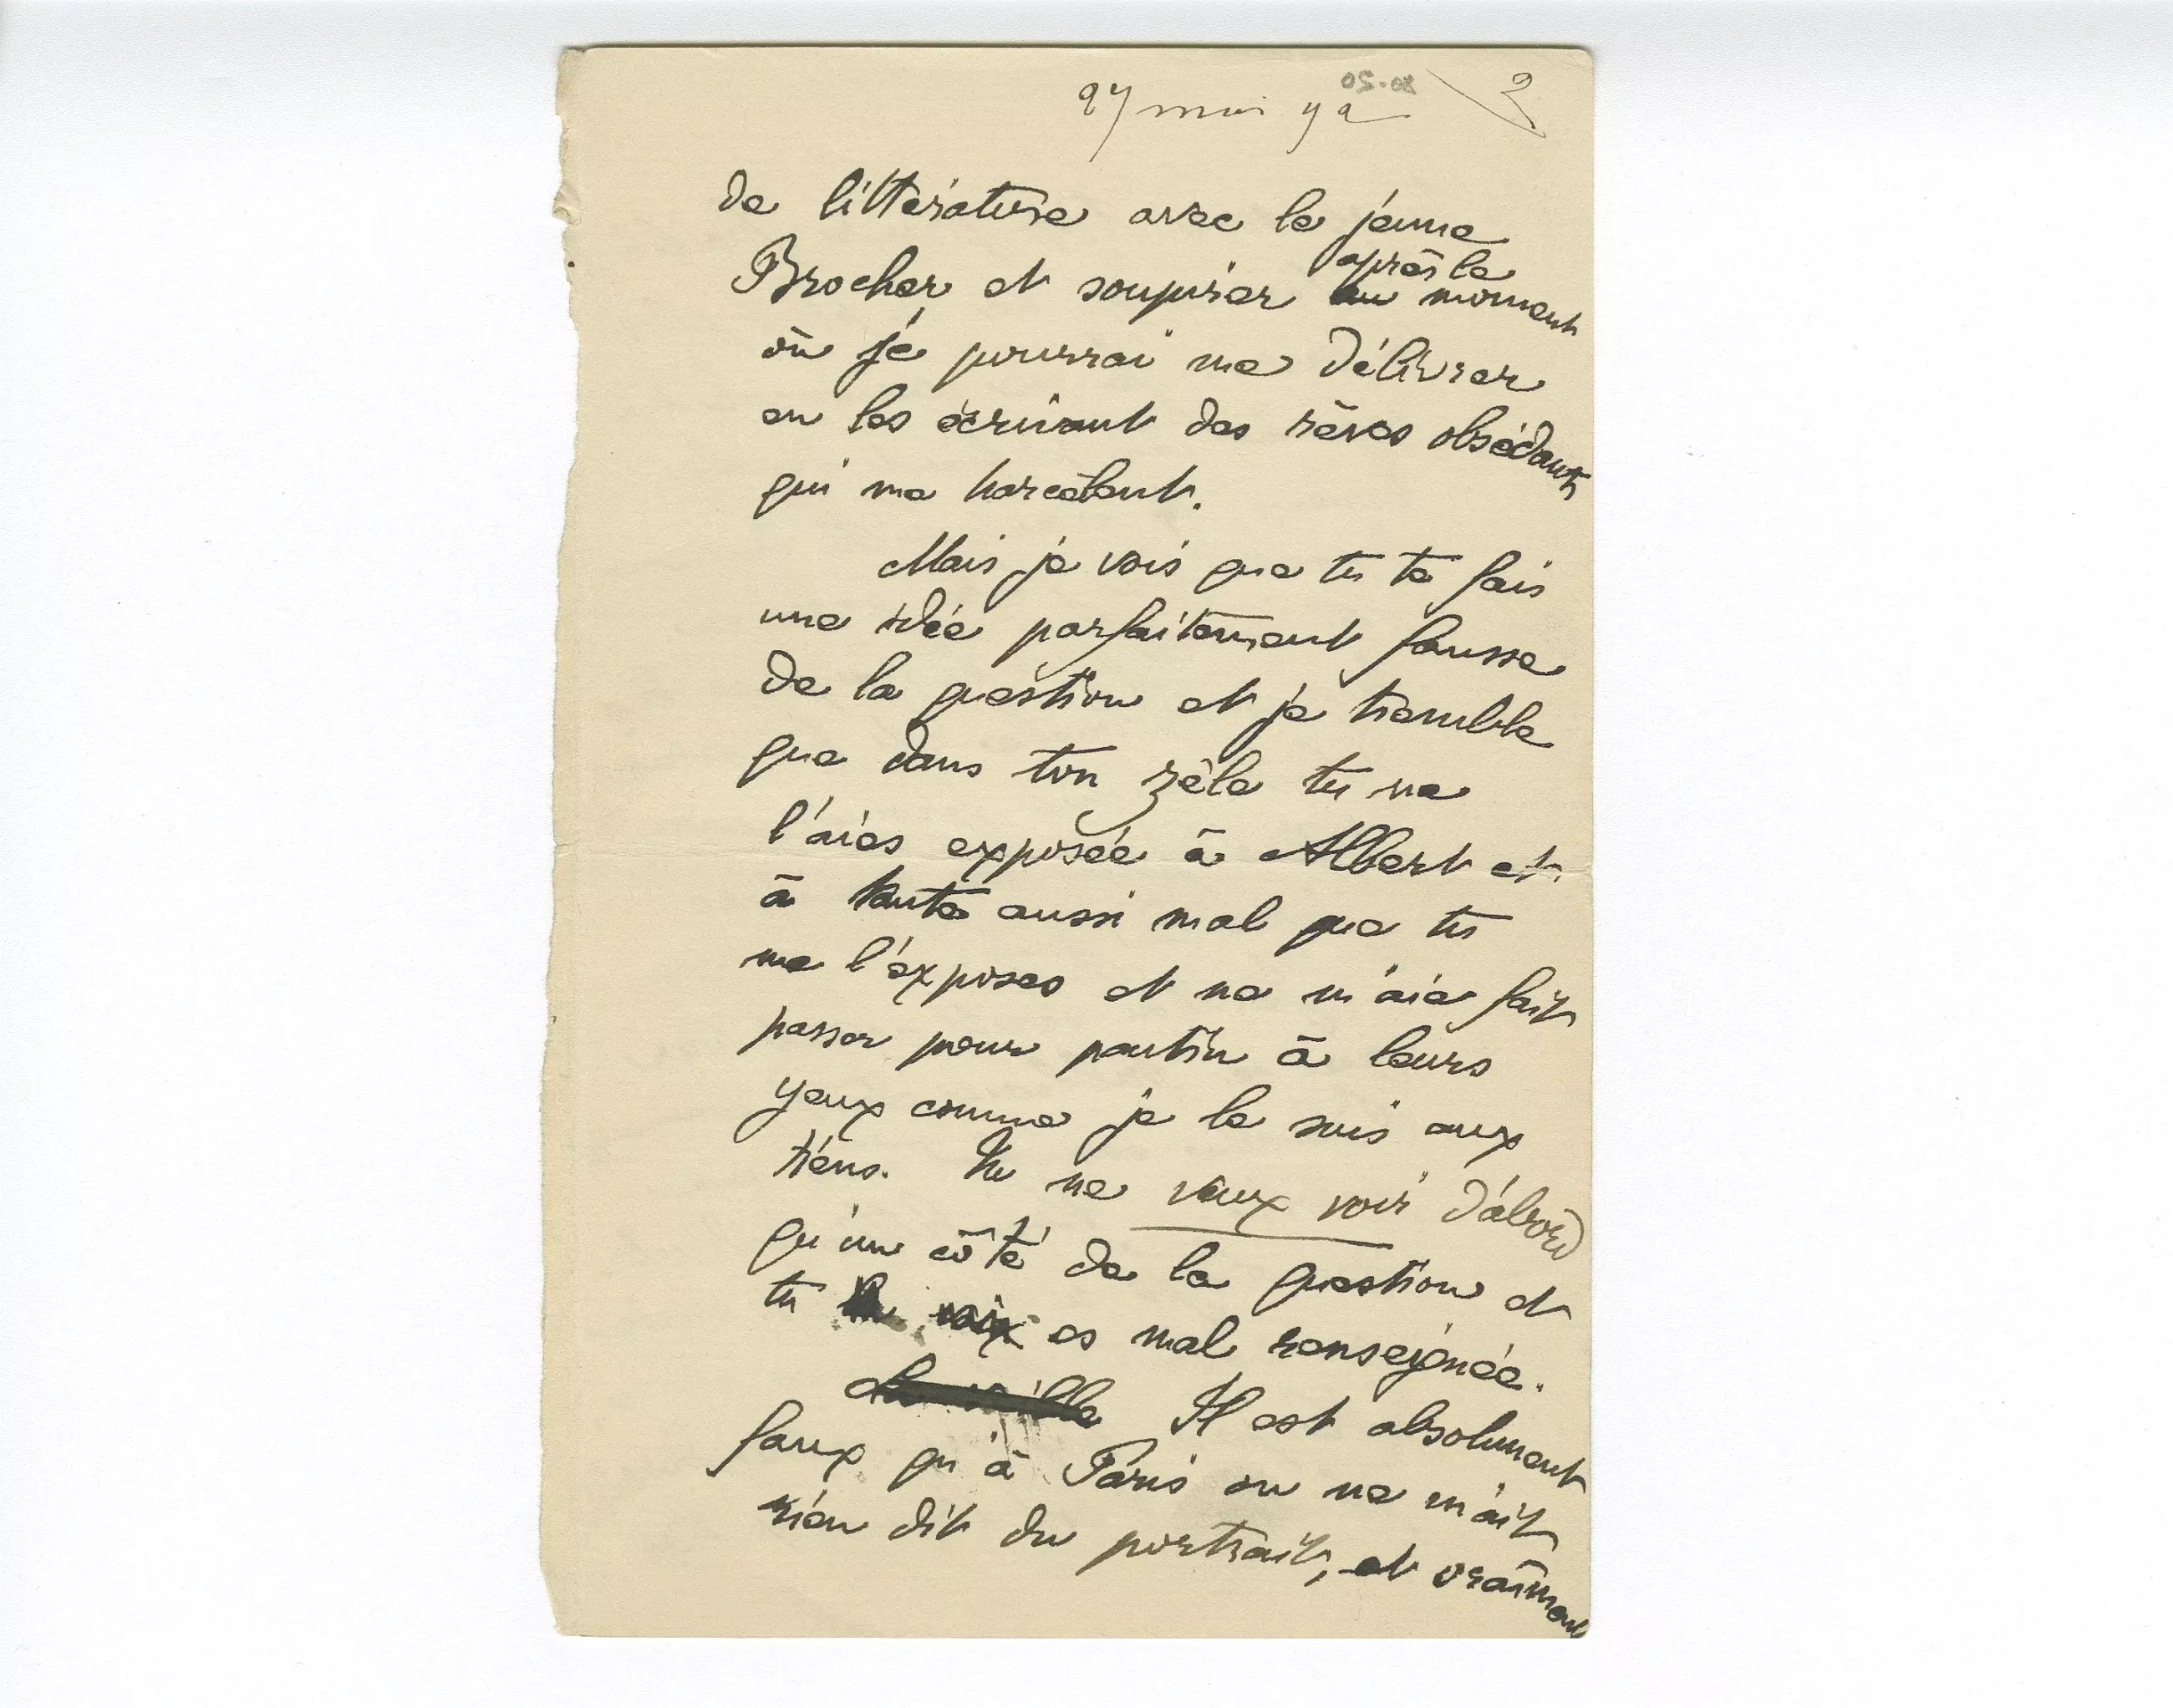 27 mai 92 2
de littérature avec le jeune
Brocher, et soupirer après le moment
où je pourrai me délivrer
en les écrivant des rêves obsédants
qui me harcèlent.
Mais je vois que tu te fais
une idée parfaitement fausse
de la question et je tremble
que dans ton zèle tu ne
l'aies exposée à Albert et
à tante aussi mal que tu
me l'exposes et ne m'aie fait
passer pour pantin à leurs
yeux comme je le suis aux
tiens. Tu ne veux voir d'abord
qu'un côté de la question et
tu es mal renseignée.
Il est absolument
faux qu'à Paris on ne m'ait
rien dit du portrait, et vraiment